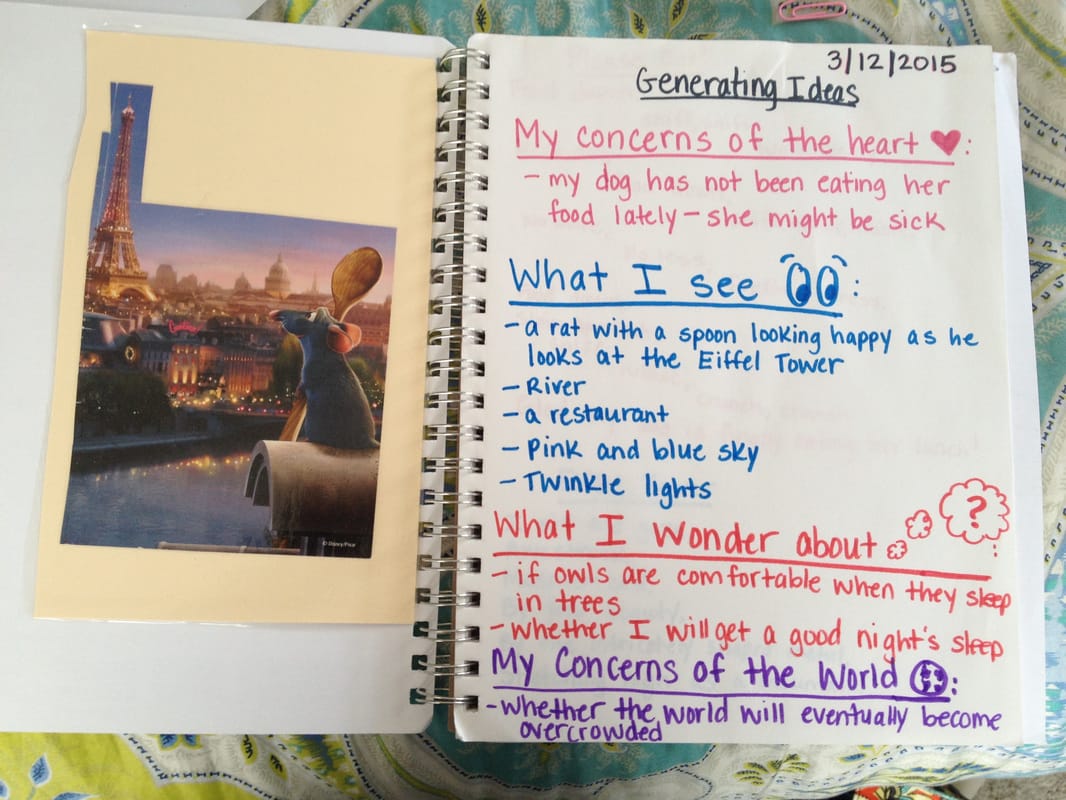 3/12/2015
Generating Ideas
My concerns of the heart ♥:
- my dog has not been eating her
food lately - she might be sick
What I see :
- a rat with a spoon looking happy as he
looks at the Eiffel Tower
- River
- a restaurant
- Pink and blue sky
- Twinkle lights
What I Wonder about ? :
- if owls are comfortable when they sleep
in trees
- whether I will get a good night's sleep
My Concerns of the World :
- whether the world will eventually become
overcrowded
© Disney/Pixar